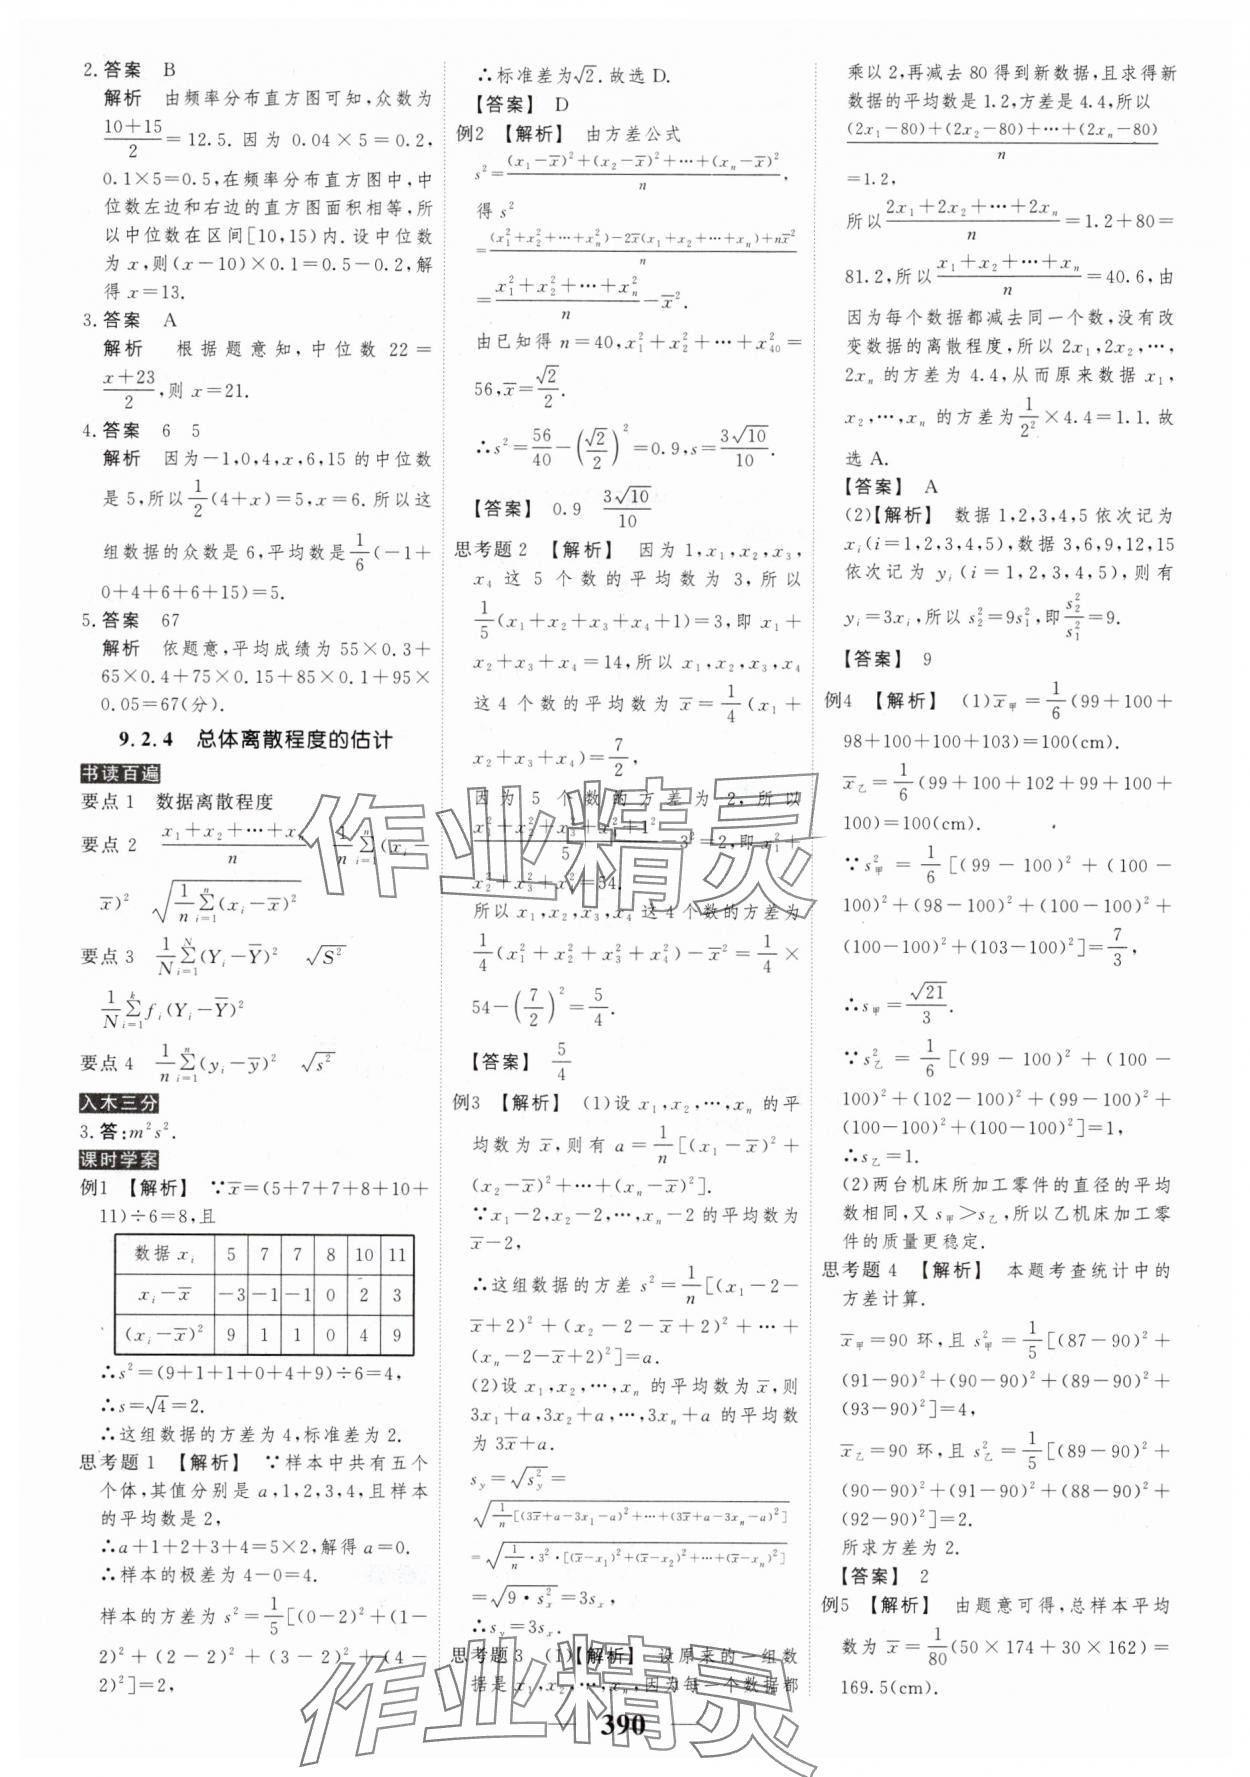 2. 答案 B
解析 由频率分布直方图可知,众数为
(10+15)/2=12.5. 因为 0.04×5=0.2,
0.1×5=0.5,在频率分布直方图中,中
位数左边和右边的直方图面积相等,所
以中位数在区间[10,15)内. 设中位数
为 x,则(x-10)×0.1=0.5-0.2,解
得 x=13.
3. 答案 A
解析 根据题意知,中位数 22=
(x+23)/2,则 x=21.
4. 答案 6 5
解析 因为-1,0,4,x,6,15 的中位数
是 5,所以 1/2(4+x)=5,x=6. 所以这
组数据的众数是 6,平均数是 1/6(-1+
0+4+6+6+15)=5.
5. 答案 67
解析 依题意,平均成绩为 55×0.3+
65×0.4+75×0.15+85×0.1+95×
0.05=67(分).
9.2.4 总体离散程度的估计
书读百遍
要点 1 数据离散程度
要点 2 (x₁+x₂+⋯+xₙ)/n 1/n ∑ⁿᵢ₌₁(xᵢ-
x̄)² √(1/n ∑ⁿᵢ₌₁(xᵢ-x̄)²)
要点 3 1/N ∑ᴺᵢ₌₁(Yᵢ-Ȳ)² √S²
1/N ∑ᵏᵢ₌₁fᵢ(Yᵢ-Ȳ)²
要点 4 1/n ∑ⁿᵢ₌₁(yᵢ-ȳ)² √s²
入木三分
3. 答:m²s².
课时学案
例1 【解析】 ∵x̄=(5+7+7+8+10+
11)÷6=8,且
数据 xᵢ 5 7 7 8 10 11
xᵢ-x̄ -3 -1 -1 0 2 3
(xᵢ-x̄)² 9 1 1 0 4 9
∴s²=(9+1+1+0+4+9)÷6=4,
∴s=√4=2.
∴这组数据的方差为 4,标准差为 2.
思考题 1 【解析】 ∵样本中共有五个
个体,其值分别是 a,1,2,3,4,且样本
的平均数是 2,
∴a+1+2+3+4=5×2,解得 a=0.
∴样本的极差为 4-0=4.
样本的方差为 s²=1/5[(0-2)²+(1-
2)²+(2-2)²+(3-2)²+(4-
2)²]=2,
∴标准差为√2. 故选 D.
【答案】 D
例2 【解析】 由方差公式
s²=((x₁-x̄)²+(x₂-x̄)²+⋯+(xₙ-x̄)²)/n,
得 s²
=((x₁²+x₂²+⋯+xₙ²)-2x̄(x₁+x₂+⋯+xₙ)+nx̄²)/n
=(x₁²+x₂²+⋯+xₙ²)/n-x̄².
由已知得 n=40,x₁²+x₂²+⋯+x₄₀²=
56,x̄=√2/2.
∴s²=56/40-(√2/2)²=0.9,s=3√10/10.
【答案】 0.9 3√10/10
思考题 2 【解析】 因为 1,x₁,x₂,x₃,
x₄ 这 5 个数的平均数为 3,所以
1/5(x₁+x₂+x₃+x₄+1)=3,即 x₁+
x₂+x₃+x₄=14,所以 x₁,x₂,x₃,x₄
这 4 个数的平均数为 x̄=1/4(x₁+
x₂+x₃+x₄)=7/2,
因为 5 个数的方差为 2,所以
(x₁²+x₂²+x₃²+x₄²+1²)/5-3²=2,即 x₁²+
x₂²+x₃²+x₄²=54.
所以 x₁,x₂,x₃,x₄ 这 4 个数的方差为
1/4(x₁²+x₂²+x₃²+x₄²)-x̄²=1/4×
54-(7/2)²=5/4.
【答案】 5/4
例3 【解析】 (1)设 x₁,x₂,⋯,xₙ 的平
均数为 x̄,则有 a=1/n[(x₁-x̄)²+
(x₂-x̄)²+⋯+(xₙ-x̄)²].
∵x₁-2,x₂-2,⋯,xₙ-2 的平均数为
x̄-2,
∴这组数据的方差 s²=1/n[(x₁-2-
x̄+2)²+(x₂-2-x̄+2)²+⋯+
(xₙ-2-x̄+2)²]=a.
(2)设 x₁,x₂,⋯,xₙ 的平均数为 x̄,则
3x₁+a,3x₂+a,⋯,3xₙ+a 的平均数
为 3x̄+a.
s_y=√(s_y²)=
√(1/n[(3x̄+a-3x₁-a)²+⋯+(3x̄+a-3xₙ-a)²])
=√(1/n·3²·[(x̄-x₁)²+(x̄-x₂)²+⋯+(x̄-xₙ)²])
=√(9·sₓ²)=3sₓ,
∴s_y=3sₓ.
思考题 3 (1)【解析】 设原来的一组数
据是 x₁,x₂,⋯,xₙ,因为每一个数据都
乘以 2,再减去 80 得到新数据,且求得新
数据的平均数是 1.2,方差是 4.4,所以
((2x₁-80)+(2x₂-80)+⋯+(2xₙ-80))/n
=1.2,
所以(2x₁+2x₂+⋯+2xₙ)/n=1.2+80=
81.2,所以(x₁+x₂+⋯+xₙ)/n=40.6,由
因为每个数据都减去同一个数,没有改
变数据的离散程度,所以 2x₁,2x₂,⋯,
2xₙ 的方差为 4.4,从而原来数据 x₁,
x₂,⋯,xₙ 的方差为 1/2²×4.4=1.1. 故
选 A.
【答案】 A
(2)【解析】 数据 1,2,3,4,5 依次记为
xᵢ(i=1,2,3,4,5),数据 3,6,9,12,15
依次记为 yᵢ(i=1,2,3,4,5),则有
yᵢ=3xᵢ,所以 s₂²=9s₁²,即 s₂²/s₁²=9.
【答案】 9
例4 【解析】 (1)x̄甲=1/6(99+100+
98+100+100+103)=100(cm).
x̄乙=1/6(99+100+102+99+100+
100)=100(cm).
∵s甲²=1/6[(99-100)²+(100-
100)²+(98-100)²+(100-100)²+
(100-100)²+(103-100)²]=7/3,
∴s甲=√21/3.
∵s乙²=1/6[(99-100)²+(100-
100)²+(102-100)²+(99-100)²+
(100-100)²+(100-100)²]=1,
∴s乙=1.
(2)两台机床所加工零件的直径的平均
数相同,又 s甲>s乙,所以乙机床加工零
件的质量更稳定.
思考题 4 【解析】 本题考查统计中的
方差计算.
x̄甲=90 环,且 s甲²=1/5[(87-90)²+
(91-90)²+(90-90)²+(89-90)²+
(93-90)²]=4,
x̄乙=90 环,且 s乙²=1/5[(89-90)²+
(90-90)²+(91-90)²+(88-90)²+
(92-90)²]=2.
所求方差为 2.
【答案】 2
例5 【解析】 由题意可得,总样本平均
数为 x̄=1/80(50×174+30×162)=
169.5(cm).
390
作业精灵
作业精灵